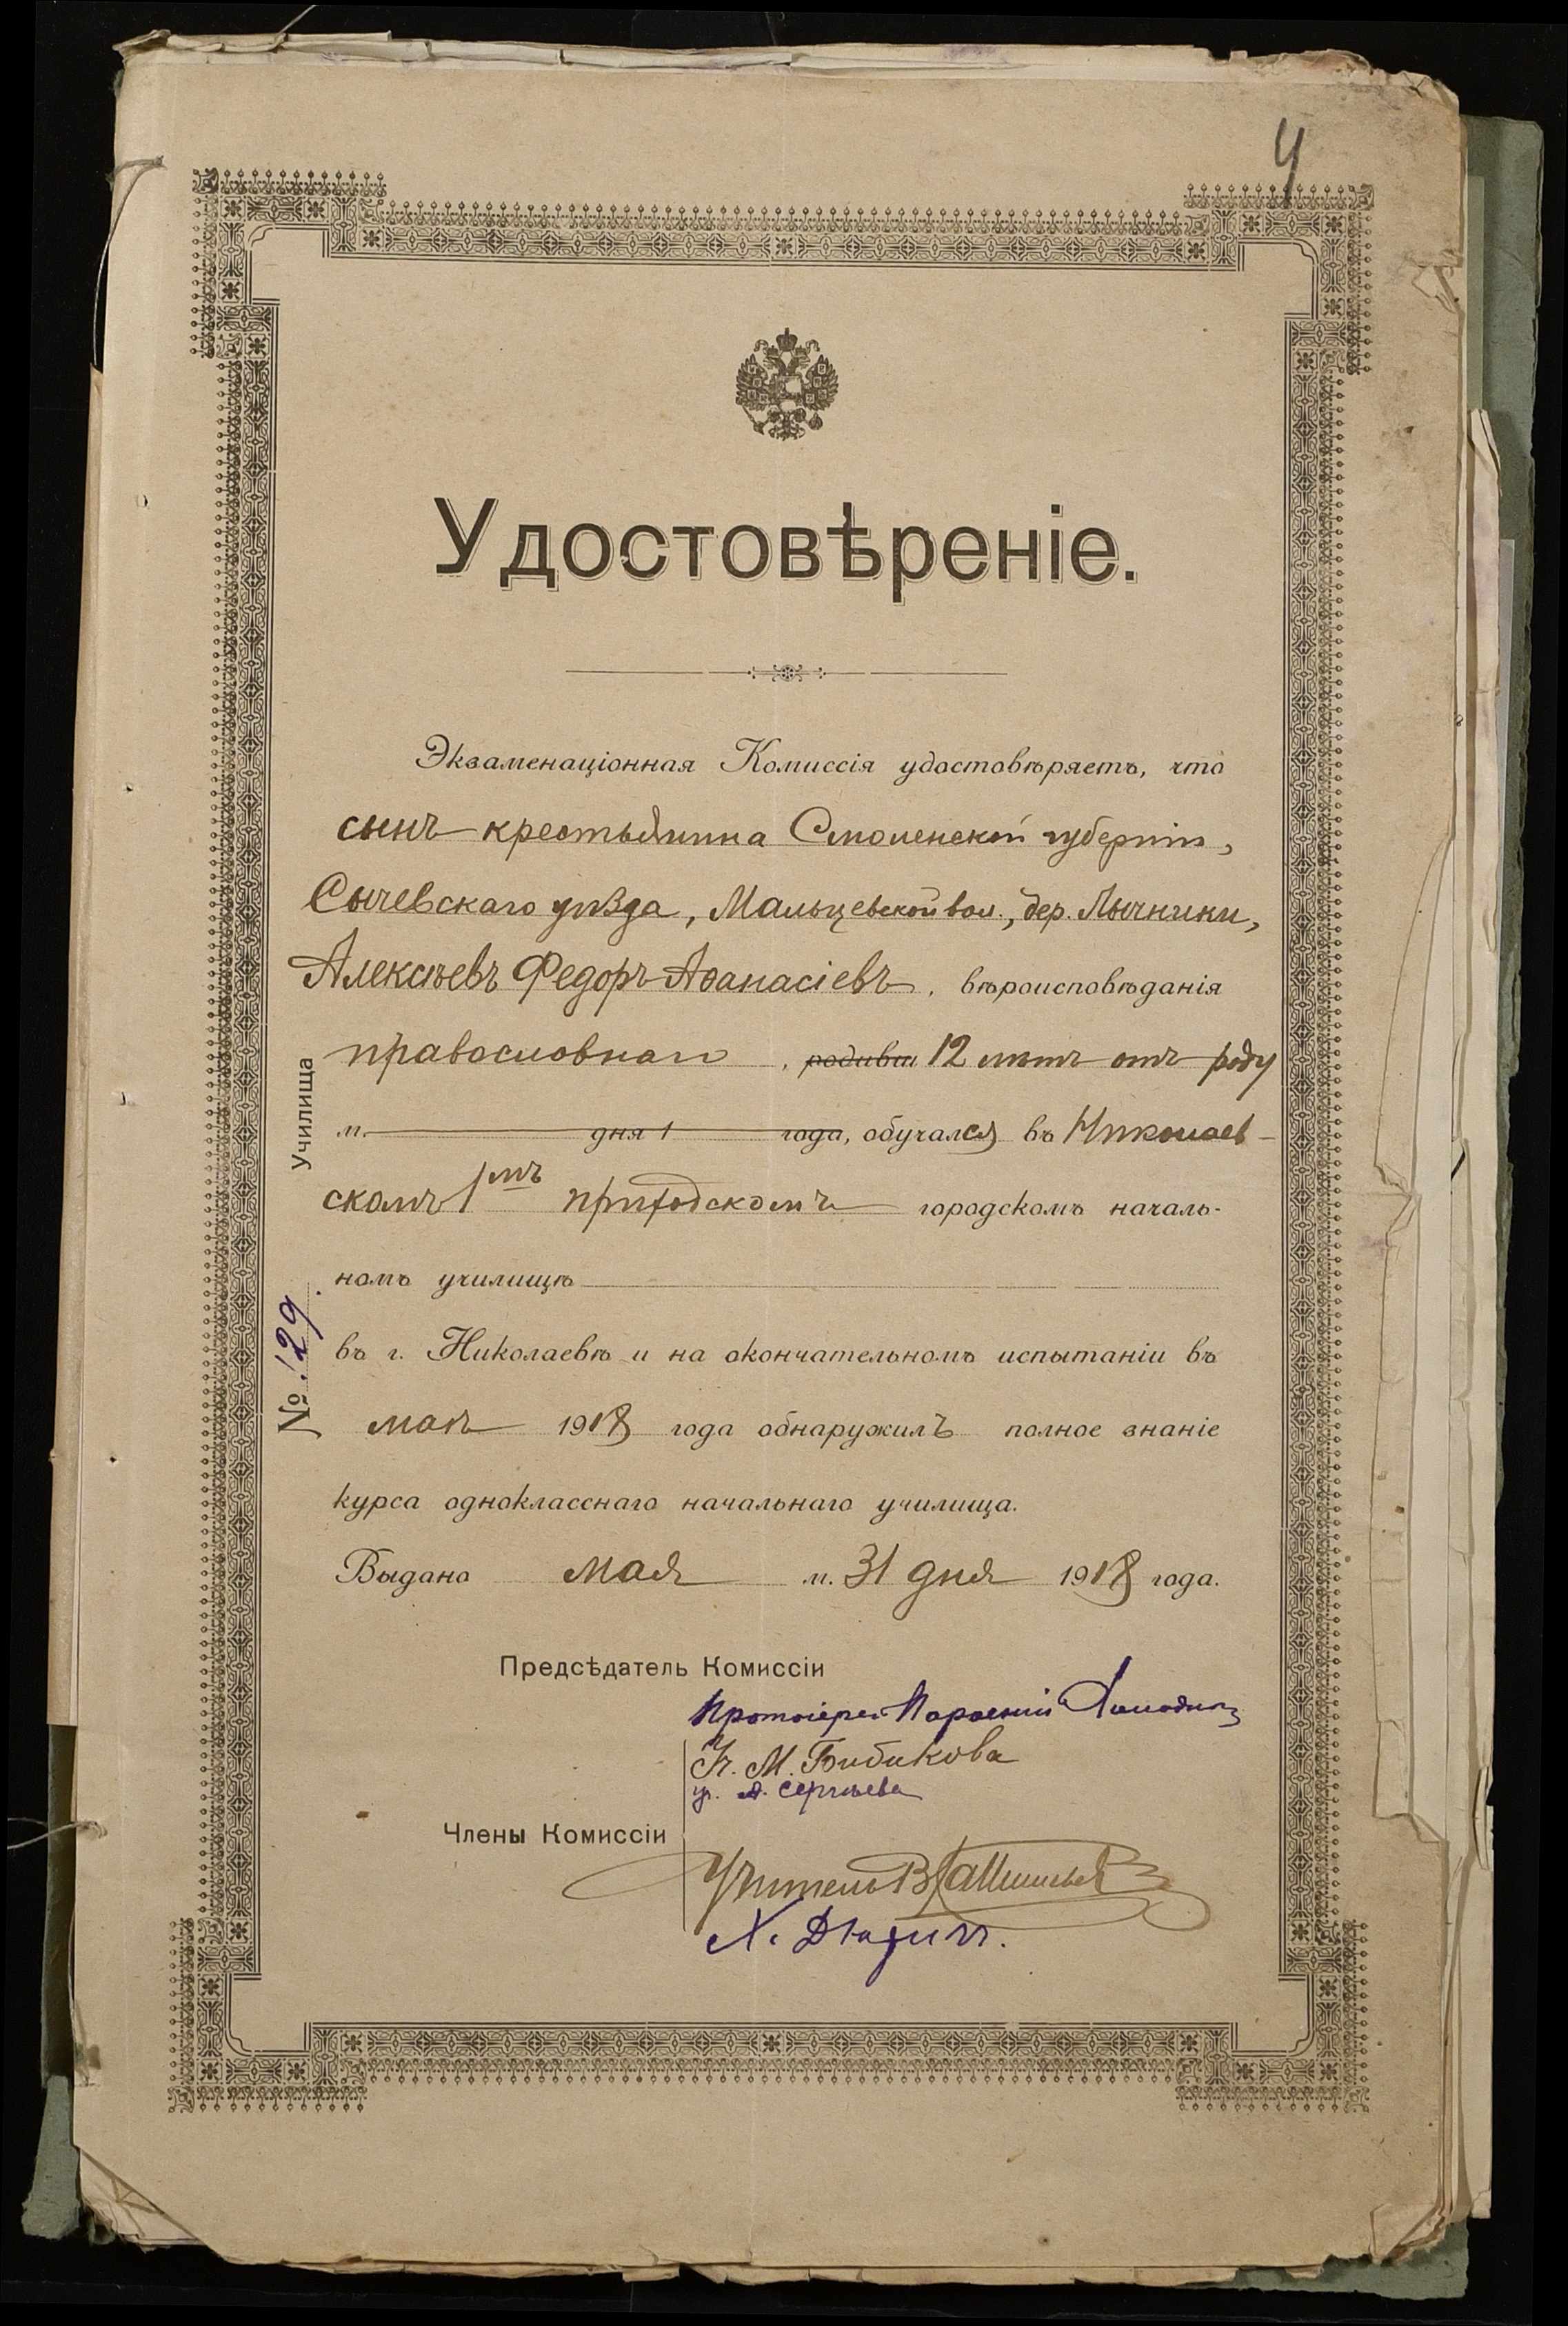 4
Удостовѣреніе.
Экзаменаціонная Комиссія удостовѣряетъ, что
сынъ крестьянина Смоленской губерніи,
Сычевскаго уѣзда, Мальцевской вол., дер. Лычники,
Алексѣевъ Федоръ Аѳанасіевъ, вѣроисповѣданія
православнаго, родивш 12 лѣтъ отъ роду
м. дня 1 года, обучался въ Николаев-
скомъ 1мъ приходскомъ городскомъ началь-
номъ училищѣ
въ г. Николаевѣ и на окончательномъ испытаніи въ
маѣ 1918 года обнаружилъ полное знаніе
курса одноклasснаго начальнаго училища.
Выдано мая м. 31 дня 1918 года.
Училища
№ 129.
Предсѣдатель Комиссіи
Протоіерей Парѳеній
Члены Комиссіи
Уч. М. Бибикова
уч. А. Сергѣева
Учитель В.
Х.